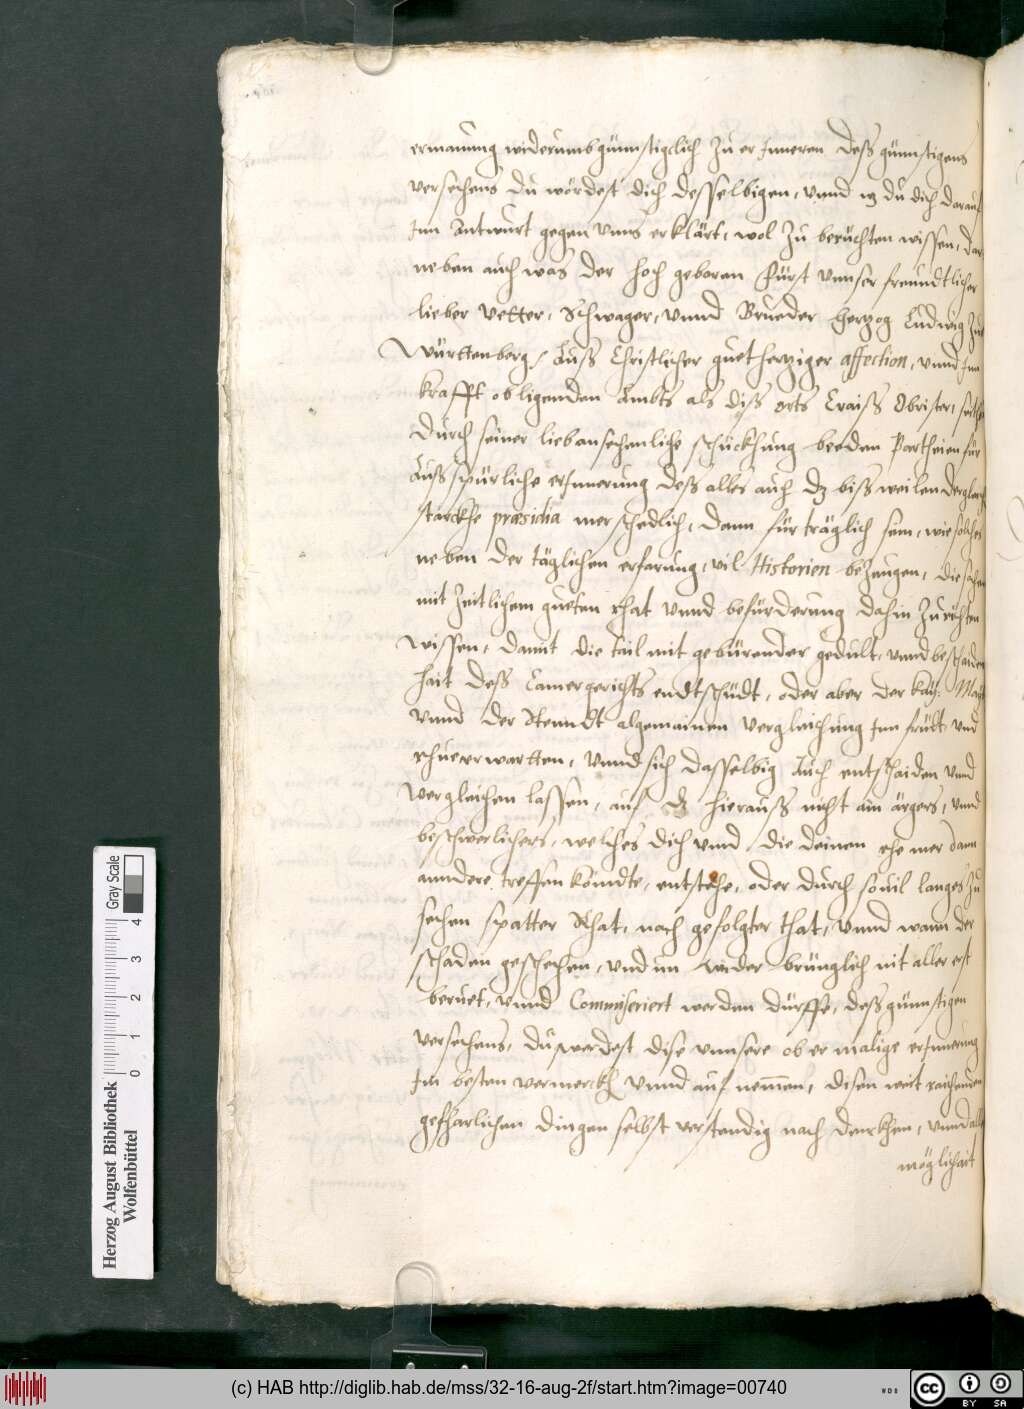 ermanung widerumb günnstigclich zu erJnneren deß günnstigens
versehens du würdest dich desselbigen, vnnd wz du dich darauf
Jnn Antwurt gegen vnns erklärt, wol zu berichten wissen, dar
neben auch was der hoch geboren Fürst vnnser freundtlicher
lieber Vetter, Schwager, vnnd Brueder Hertzog Ludwig zue
Württenberg / Auß Christlicher guethertziger affection, vnnd Jnn
krafft obligenden Ambts als diß orts Craiß Obrister,
durch seiner lieb ansehenliche schückhung beeden Partheien für
Außspürliche erJnnerung deß alles auch dz bißweilen dergleich
starckhe præsidia mer schedlich, dann fürträglich sein, wie solches
neben der täglichen erfarung, vil Historien bezeugen, die sachen
mit zeitlichem gueten rhat vnnd befürderung dahin zurichten
wissen, damit die tail mit gebürender gedult, vnnd beschaiden
hait deß Camergerichts endtschüdt, oder aber der kay: May:
vnnd der Stenndt algemainen vergleichung Jnn fridt vnd
rhue erwartten, vnnd sich dasselbig Auch entschaiden vnnd
vergleichen lassen, auf dz hierauß nicht ain ärgers, vnnd
beschwerlichers, welches dich vnnd die deinen ehe mer dann
anndere treffen köndte, entstehe, oder durch souil langes zu
sehen spatter Rhat, nach gefolgter that, vnnd wann der
schaden geschehen, vnd nn wider brünglich nit aller erst
beruet, vnnd Commiseriert werden dürffe, deß günnstigen
versehens, du werdest dise vnnsere ober malige erJnnerung
Jm besten vermerckh vnnd auf nemmen, disen weit raichenden
gefharlichen dingen selbst verstendig nach denckhen, vnnd alle
möglichait
Herzog August Bibliothek
Wolfenbüttel
0 1 2 3 4
Gray Scale
(c) HAB http://diglib.hab.de/mss/32-16-aug-2f/start.htm?image=00740
WDB
CC BY SA